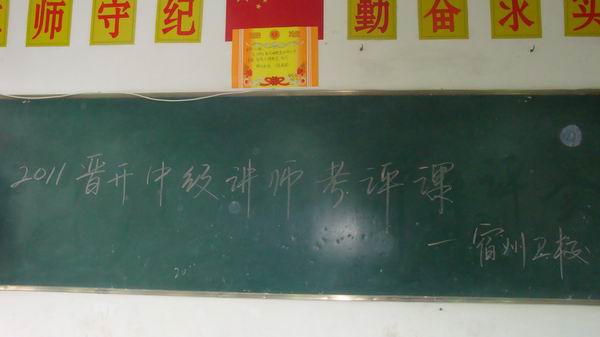 师守纪
勤奋求
2011晋升中级讲师考评课
—宿州卫校
20